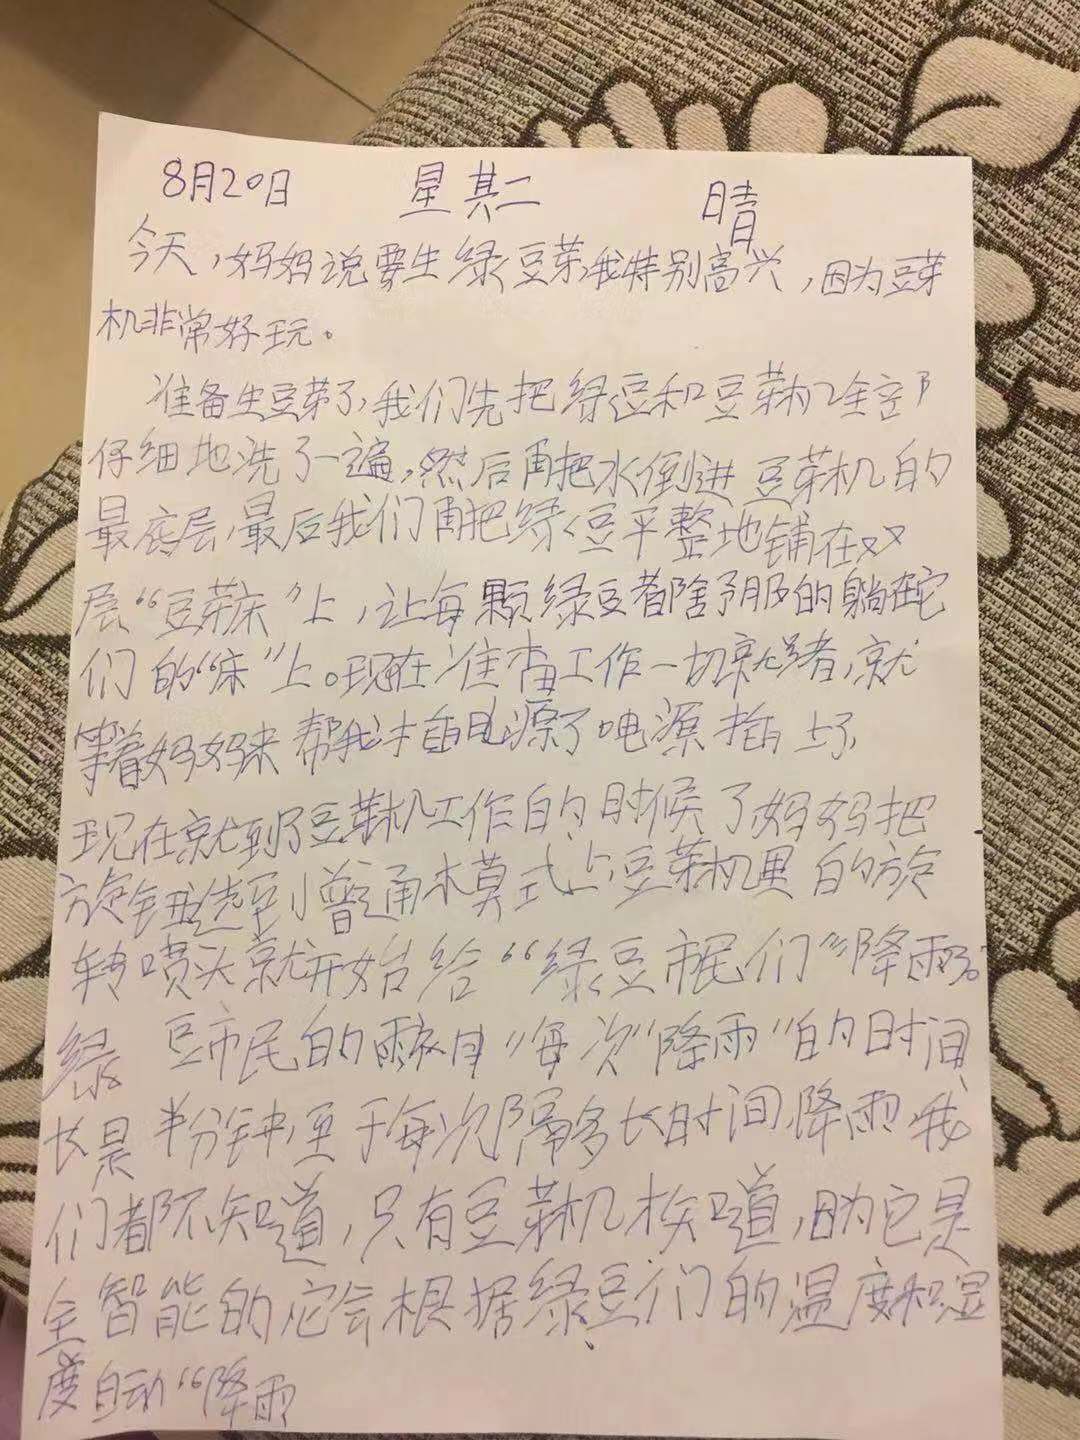 8月20日 星期二 晴
今天,妈妈说要生绿豆芽,我特别高兴,因为豆芽
机非常好玩。
准备生豆芽了,我们先把绿豆和豆芽机全部
仔细地洗了一遍,然后再把水倒进豆芽机的
最底层,最后我们再把绿豆平整地铺在双
层“豆芽床”上,让每颗绿豆都舒服的躺在它
们的“床”上。现在准备工作一切就绪,就
等着妈妈来帮我插电源了电源插上了,
现在就到了豆芽机工作的时候了妈妈把
旋钮选到普通模式上豆芽机里的旋
转喷头就开始给“绿豆市民们”降雨了。
绿豆市民的每次“降雨”的时间
长是半分钟,至于每次隔多长时间降雨我
们都不知道,只有豆芽机才知道,因为它是
全智能的它会根据绿豆们的温度和湿
度自动“降雨